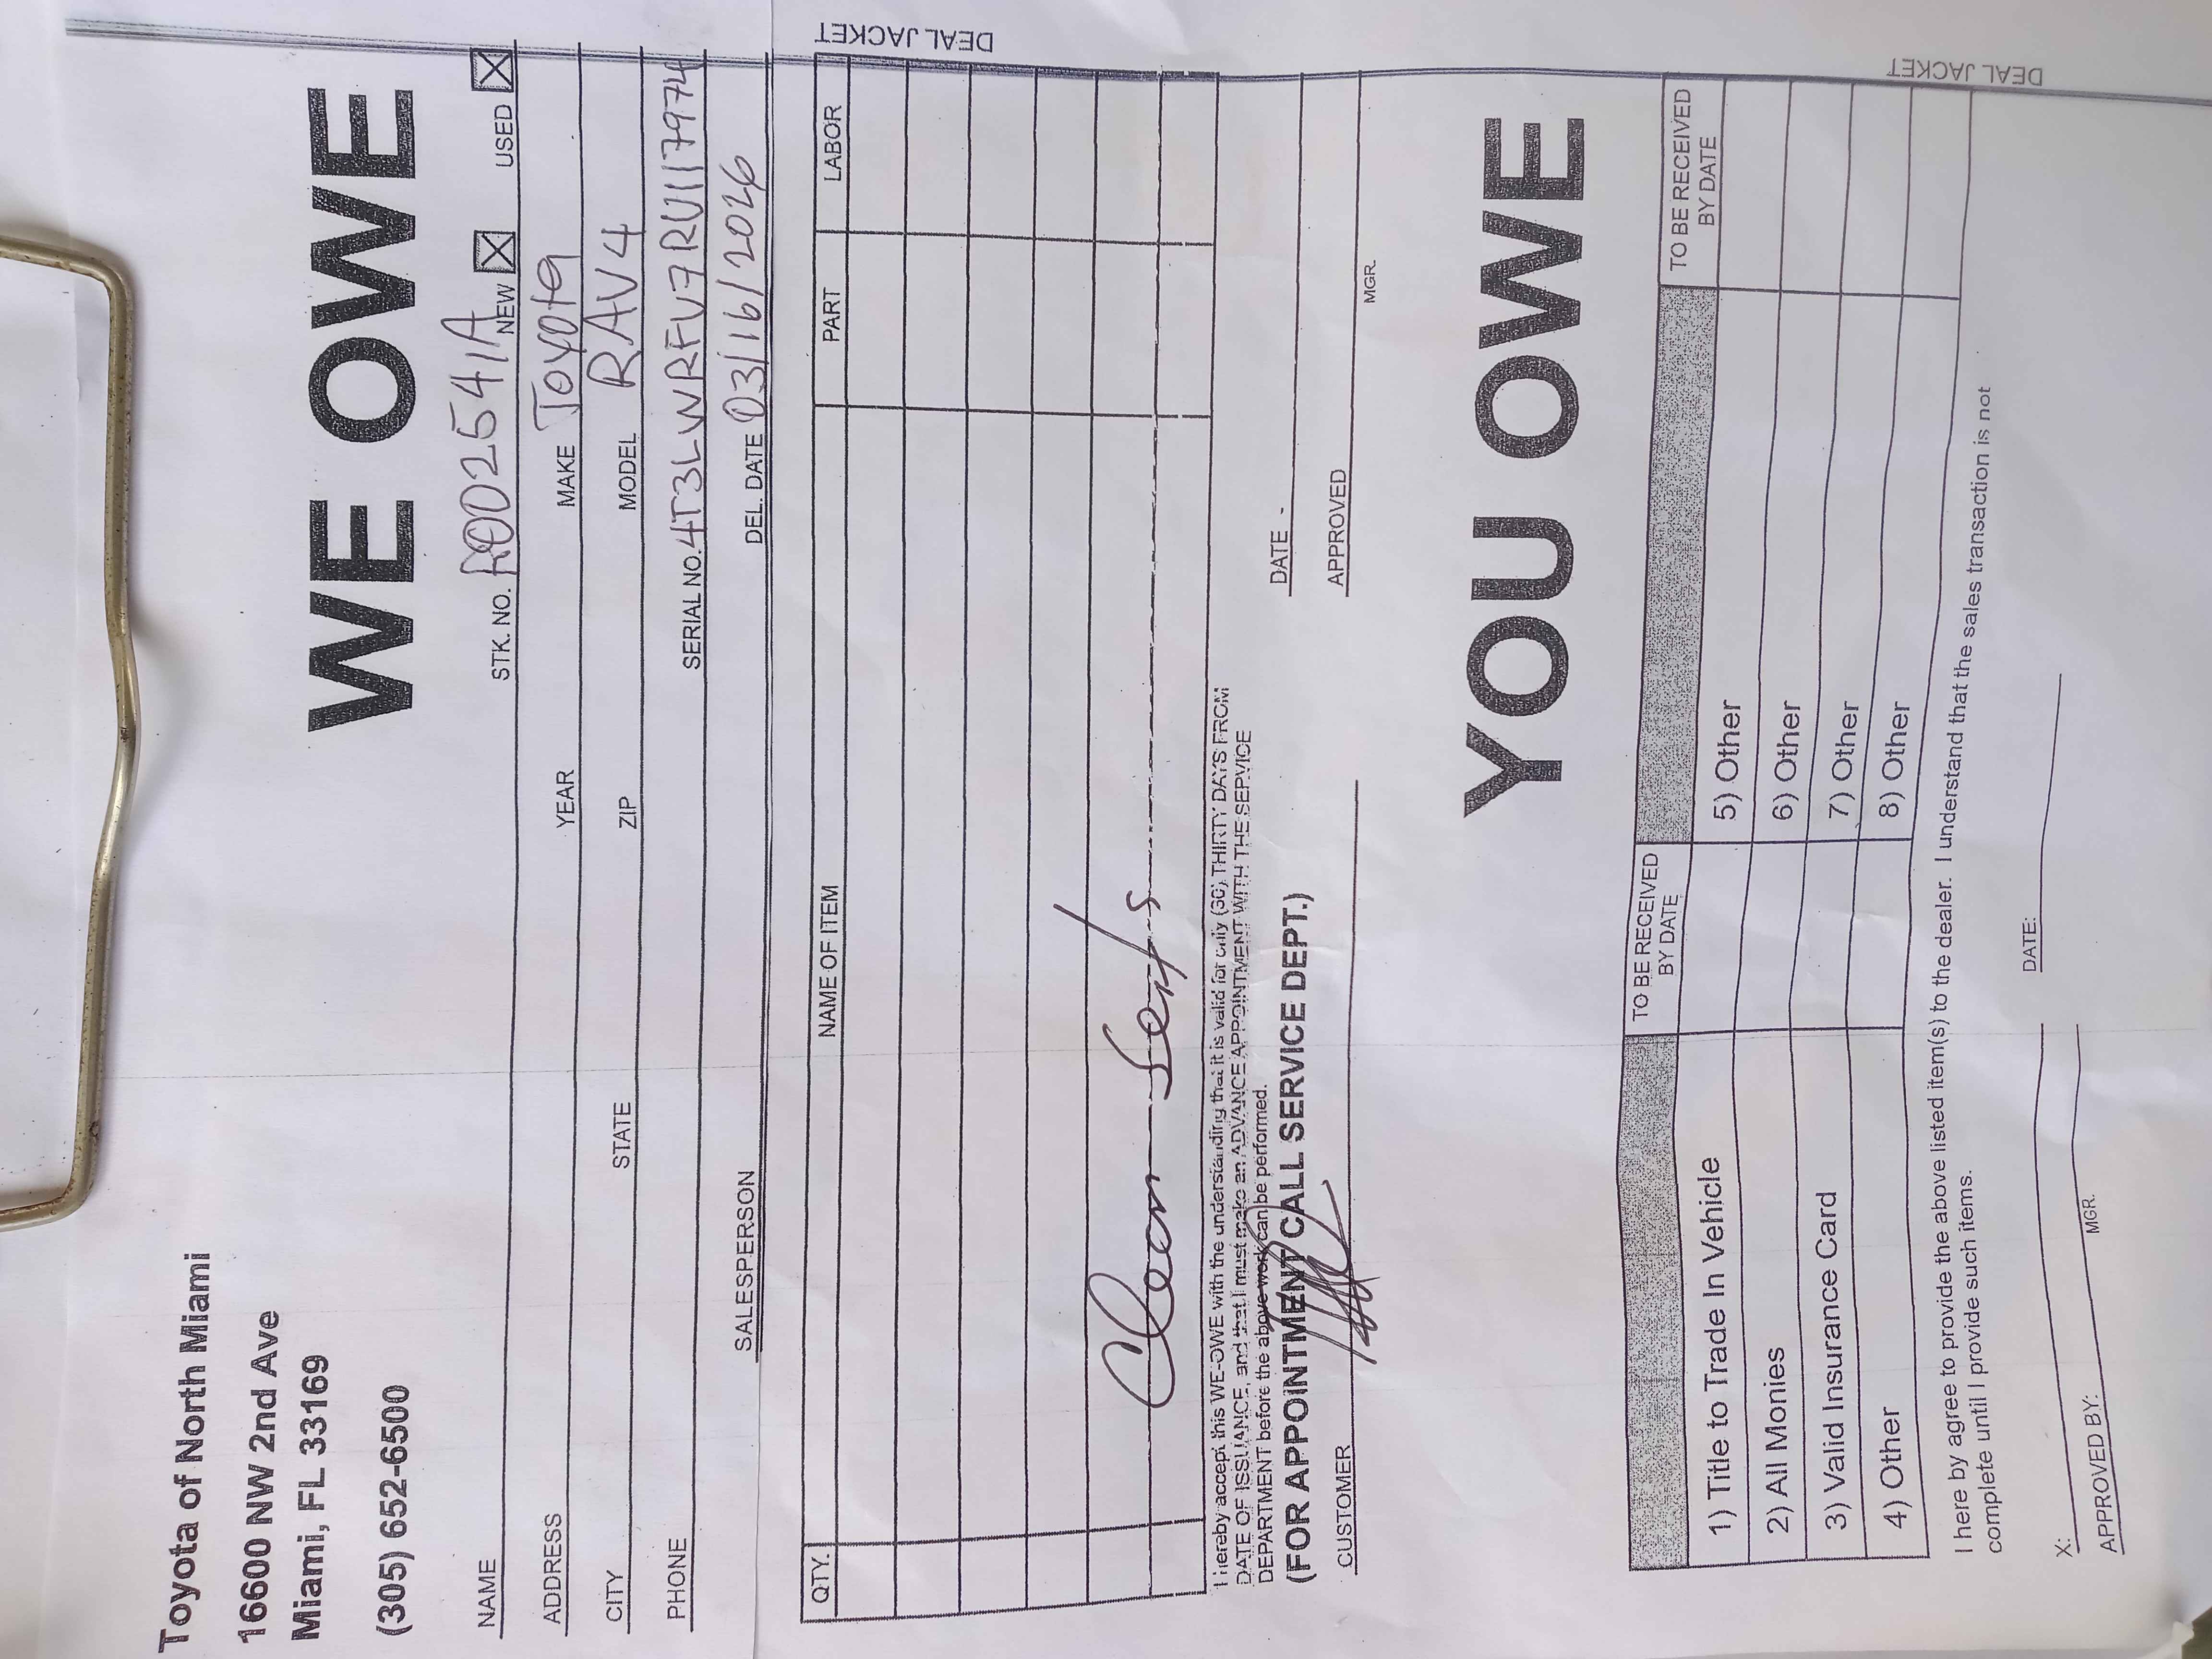 Toyota of North Miami
16600 NW 2nd Ave
Miami, FL 33169
(305) 652-6500
WE OWE
NAME STK. NO. R002541A NEW ☒ USED ☒
ADDRESS YEAR MAKE Toyota
CITY STATE ZIP MODEL RAV4
PHONE SERIAL NO. 4T3LWRFV7RU117974
SALESPERSON DEL. DATE 03/16/2026
QTY. NAME OF ITEM PART LABOR
Clean Seats
I hereby accept this WE-OWE with the understanding that it is valid for only (30) THIRTY DAYS FROM
DATE OF ISSUANCE, and that I must make an ADVANCE APPOINTMENT WITH THE SERVICE
DEPARTMENT before the above work can be performed.
(FOR APPOINTMENT CALL SERVICE DEPT.)
DATE
CUSTOMER APPROVED
MGR.
YOU OWE
TO BE RECEIVED BY DATE TO BE RECEIVED BY DATE
1) Title to Trade In Vehicle 5) Other
2) All Monies 6) Other
3) Valid Insurance Card 7) Other
4) Other 8) Other
I here by agree to provide the above listed item(s) to the dealer. I understand that the sales transaction is not
complete until I provide such items.
X: DATE:
APPROVED BY:
MGR.
DEAL JACKET
DEAL JACKET